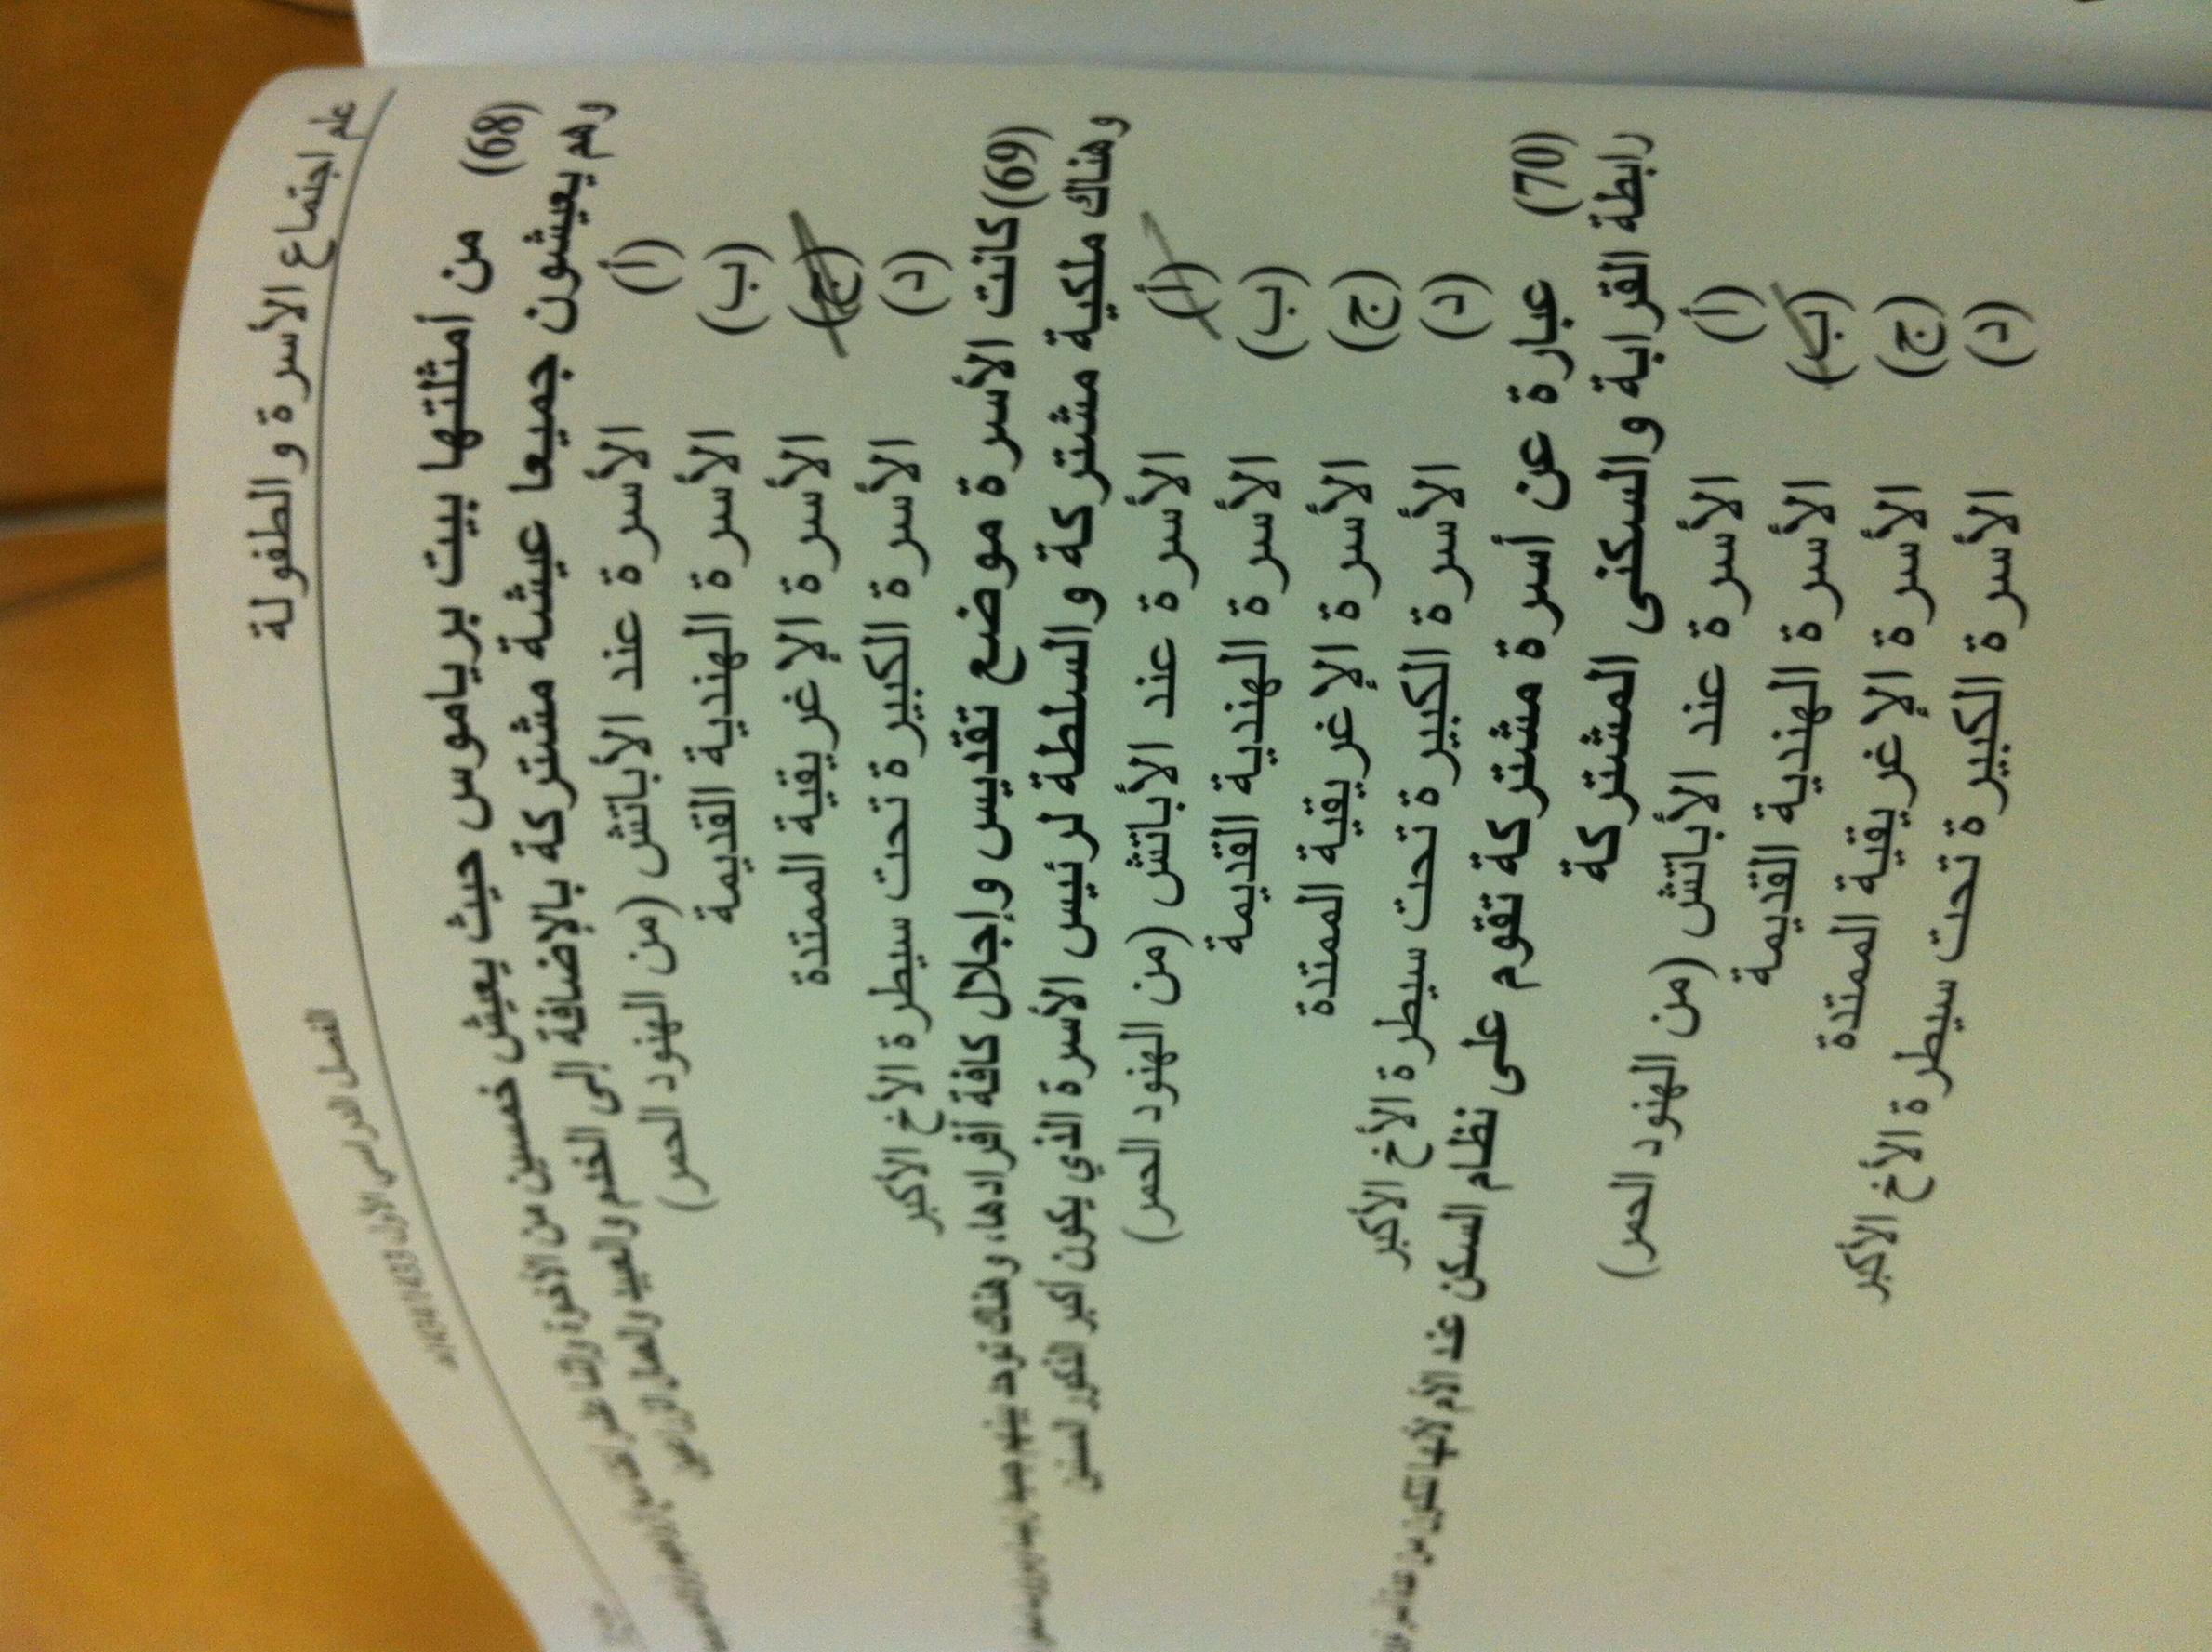 علم اجتماع الأسرة والطفولة
الفصل الدراسي الأول 1433/1434هـ
(68) من أمثلتها بيت برياموس حيث يعيش خمسين من الأخوة
وهم يعيشون جميعا عيشة مشتركة بالإضافة إلى الخدم والعبيد
(أ) الأسرة عند الأباتش (من الهنود الحمر)
(ب) الأسرة الهندية القديمة
(ج) الأسرة الإغريقية الممتدة
(د) الأسرة الكبيرة تحت سيطرة الأخ الأكبر
(69) كانت الأسرة موضع تقديس وإجلال كافة أفرادها، وهناك توحد بينهم
وهناك ملكية مشتركة والسلطة لرئيس الأسرة الذي يكون أكبر الذكور لسنين
(أ) الأسرة عند الأباتش (من الهنود الحمر)
(ب) الأسرة الهندية القديمة
(ج) الأسرة الإغريقية الممتدة
(د) الأسرة الكبيرة تحت سيطرة الأخ الأكبر
(70) عبارة عن أسرة مشتركة تقوم على نظام السكن عند الأم لأنها تتكون من
رابطة القرابة والسكنى المشتركة
(أ) الأسرة عند الأباتش (من الهنود الحمر)
(ب) الأسرة الهندية القديمة
(ج) الأسرة الإغريقية الممتدة
(د) الأسرة الكبيرة تحت سيطرة الأخ الأكبر